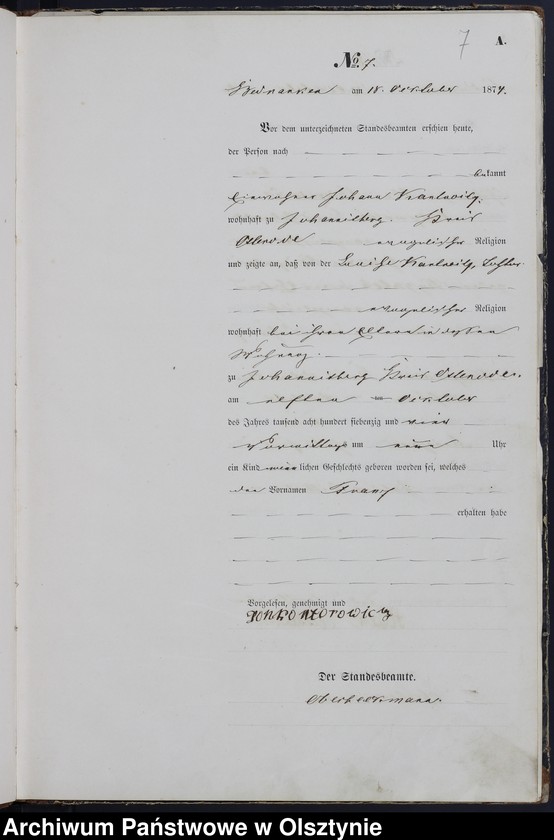 7
A.
No. 7.
am 18. October 1874.
Vor dem unterzeichneten Standesbeamten erschien heute,
der Person nach
bekannt
Einwohner Johann
wohnhaft zu Johannisberg. Kreis
Osterode evangelischer Religion
und zeigte an, daß von der Louise Tochter
evangelischer Religion
wohnhaft bei ihren Eltern in dessen
Wohnung
zu Johannisberg Kreis Osterode.
am elften October
des Jahres tausend acht hundert siebenzig und vier
Vormittags um neun Uhr
ein Kind männlichen Geschlechts geboren worden sei, welches
den Vornamen Franz
erhalten habe
Vorgelesen, genehmigt und
Der Standesbeamte.
Archiwum Państwowe w Olsztynie